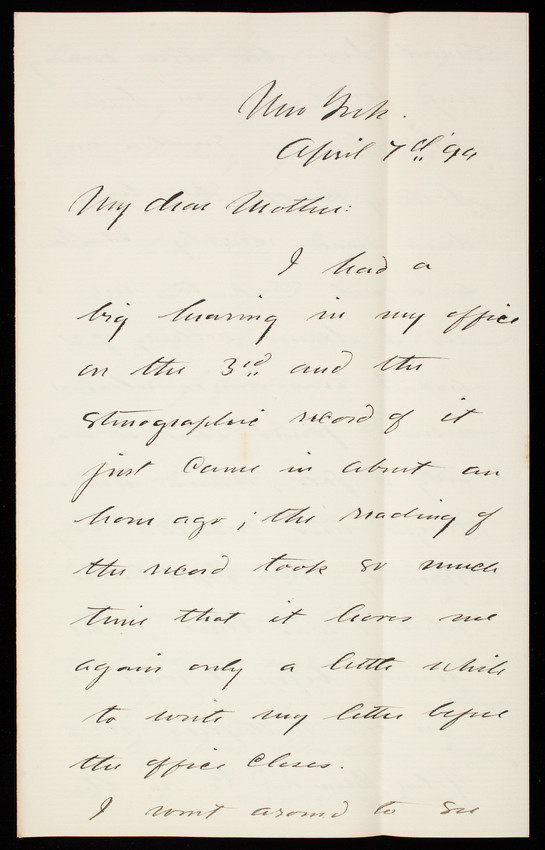 New York.
April 7th '94
My dear Mother:
I had a
big hearing in my office
on the 3rd and the
stenographic record of it
just came in about an
hour ago; the reading of
the record took so much
time that it leaves me
again only a little while
to write my letter before
the office closes.
I went around to see